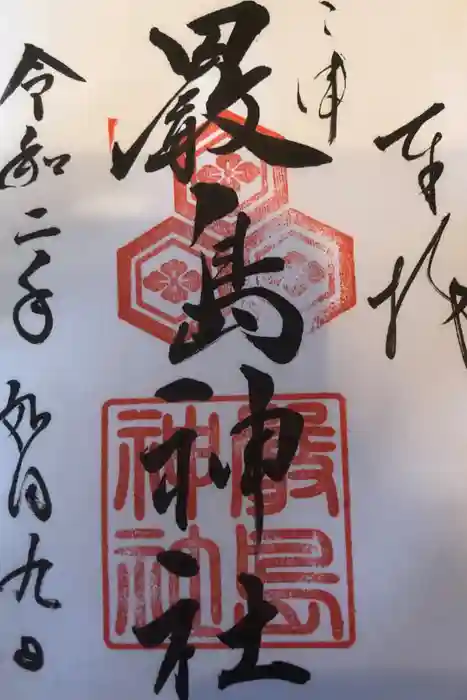 奉拝
三津
厳島神社
令和二年九月九日
嚴島
神社